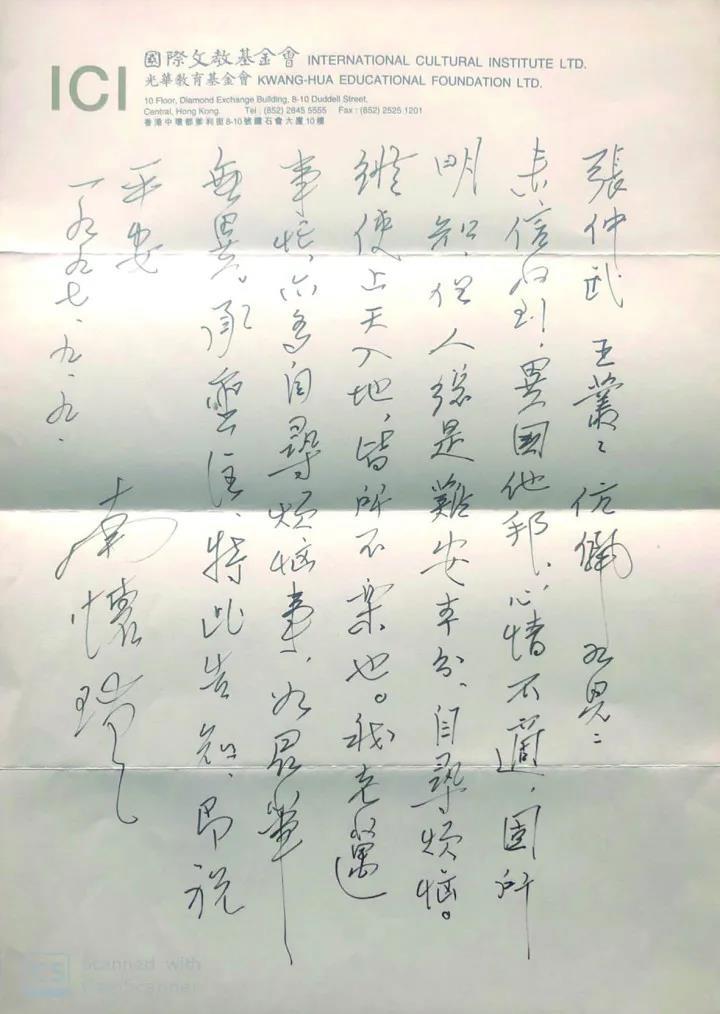 ICI
國際文教基金會 INTERNATIONAL CULTURAL INSTITUTE LTD.
光華教育基金會 KWANG-HUA EDUCATIONAL FOUNDATION LTD.
10 Floor, Diamond Exchange Building, 8-10 Duddell Street,
Central, Hong Kong. Tel : (852) 2845 5555 Fax : (852) 2525 1201
香港中環都爹利街8-10號鑽石會大廈10樓
張仲武 王叢叢 伉儷
來信收到，異國他邦、心情不適，固所
明知，但人總是難安本分、自尋煩惱。
縱使上天入地，皆所不樂也。我老邁
事忙，亦多自尋煩惱事，
無異。承 注、特此告知、即祝
平安
一九九七、九、九、
南懷瑾
Scanned with
CamScanner